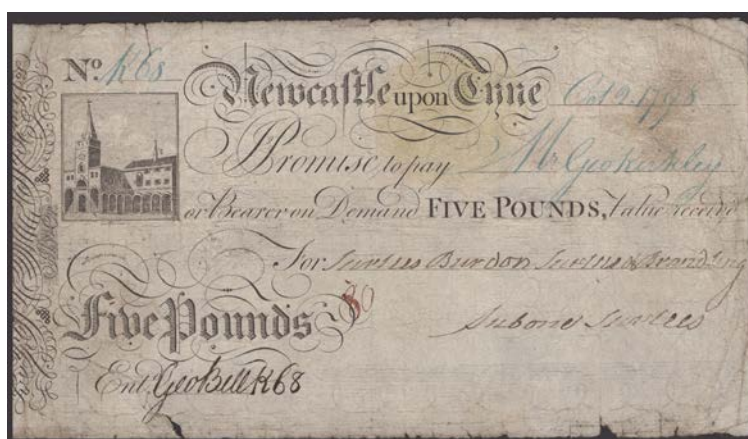 No. K68 Newcaſtle upon Tyne Oct 9. 1798
Promise to pay Mr Geo Kirkley
or Bearer on Demand FIVE POUNDS, Value receiv'd
For Surtees Burdon Surtees & Brandling
Five Pounds 80
Aubone Surtees
Ent. Geo Bell K68